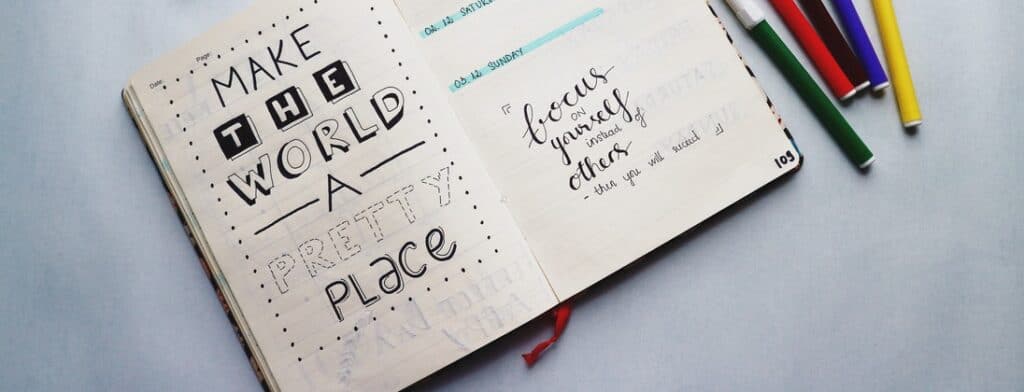 Date:
Page:
MAKE
THE
WORLD
A
PRETTY
PLACE
02.12 SATURD
03.12 SUNDAY
focus
ON
yourself
instead of
others
- then you will succeed
105